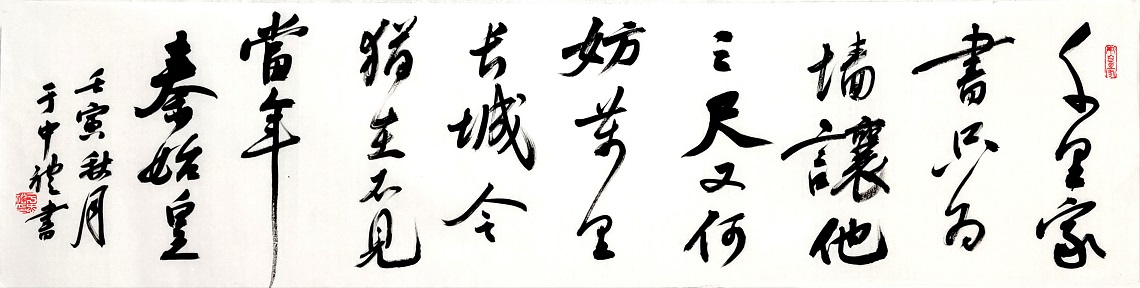 千里家
書只为
墙讓他
三尺又何
妨萬里
长城今
猶在不見
當年
秦始皇
壬寅秋月
于中禮書